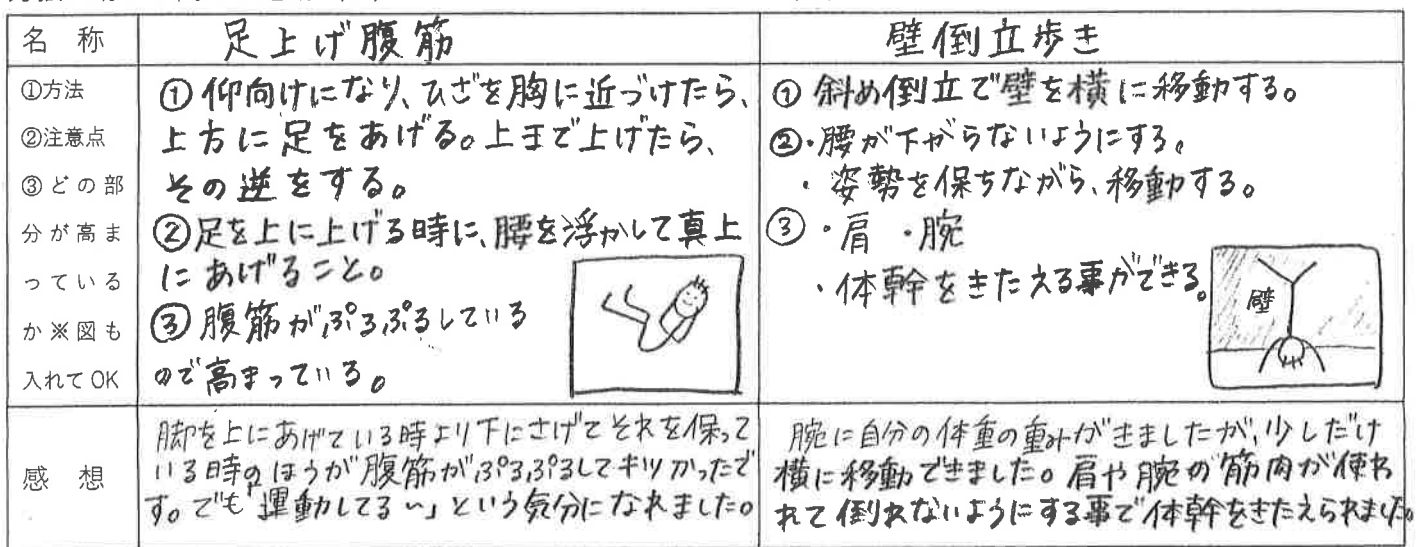 名称
足上げ腹筋
壁倒立歩き
①方法
②注意点
③どの部
分が高ま
っている
か※図も
入れてOK
①仰向けになり、ひざを胸に近づけたら、
上方に足をあげる。上まで上げたら、
その逆をする。
②足を上に上げる時に、腰を浮かして真上
にあげること。
③腹筋がぷるぷるしている
ので高まっている。
①斜め倒立で壁を横に移動する。
②・腰が下がらないようにする。
・姿勢を保ちながら、移動する。
③・肩 ・腕
・体幹をきたえる事ができる。
壁
感想
脚を上にあげている時より下にさげてそれを保って
いる時のほうが腹筋がぷるぷるしてキツかったで
す。でも「運動してる～」という気分になれました。
腕に自分の体重の重みがきましたが、少しだけ
横に移動できました。肩や腕の筋肉が使わ
れて倒れないようにする事で体幹をきたえられました。